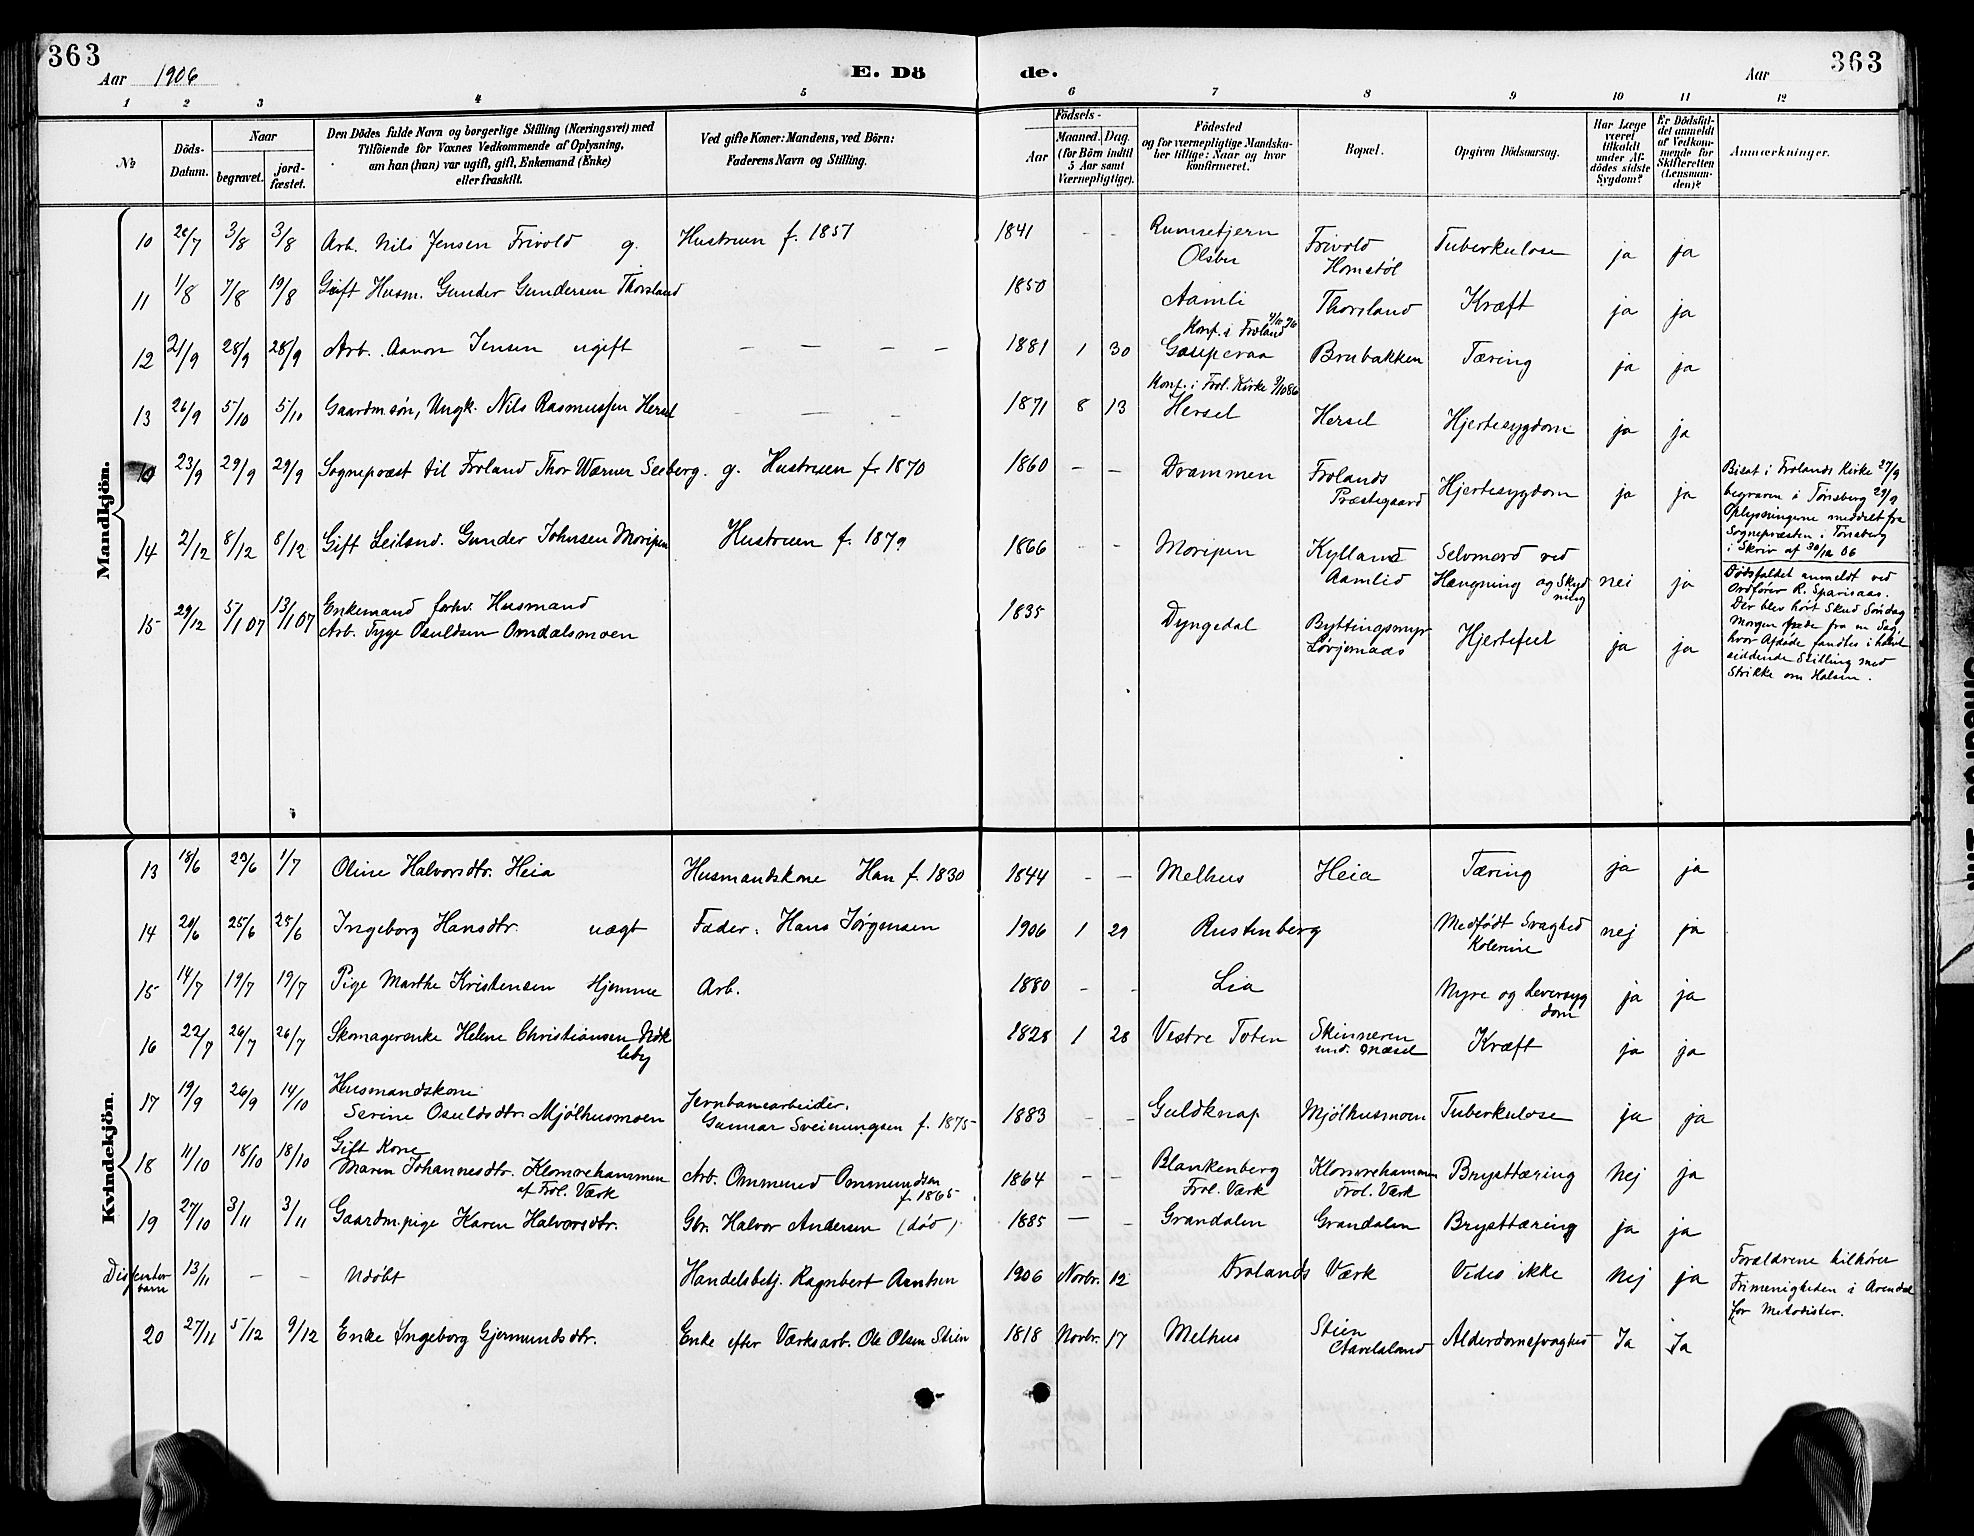 363
Aar 1906
E. Dö
de.
Aar
363
1 2 3 4 5 6 7 8 9 10 11 12
No
Döds-
Datum.
Naar
begravet.
jord-
fæstet.
Den Dödes fulde Navn og borgerlige Stilling (Næringsvei) med
Tilföiende for Voxnes Vedkommende af Oplysning,
om han (hun) var ugift, gift, Enkemand (Enke)
eller fraskilt.
Ved gifte Koner: Mandens, ved Börn:
Faderens Navn og Stilling.
Födsels-
Aar
Maaned.
Dag.
(for Börn indtil
5 Aar samt
Værnepligtige).
Födested
og for værnepligtige Mandska-
ber tillige: Naar og hvor
konfirmeret.
Bopæl.
Opgiven Dödsaarsag.
Har Læge
været
tilkaldt
under Af-
dödes sidste
Sygdom?
Er Dödsfal-
det anmeldt
af Vedkom-
mende for
Skifteretten
(Lensman-
den)?
Anmærkninger.
Mandkjön.
10 28/7 3/8 3/8 Arb. Nils Jensen Frivold g. Hustruen f. 1851 1841 - - Rumsetjern
Olsbu Frivold
Homstøl Tuberkulose ja ja
11 1/8 7/8 19/8 Gift Husm. Gunder Gundersen Thorsland 1850 Aamli Thorsland Kræft ja ja
12 21/9 28/9 28/9 Arb. Aanon Jensen ugift — — — — 1881 1 30 Konf. i Froland
Brubakken Tæring ja ja
13 26/9 5/10 5/10 Gaardm søn, Ungk. Nils Rasmussen Hersel — — — 1871 8 13 Konf. i Frol. Kirke
Hersel Hersel Hjertesygdom ja ja
23/9 29/9 29/9 Sognepræst til Froland Thor Wærner Seeberg. g. Hustruen f. 1870 1860 — — Drammen Frolands
Præstegaard Hjertesygdom ja ja
Bisat i Frolands Kirke 27/9
begraven i Tønsberg 29/9
Oplysningerne meddelt fra
Sognepræsten i Tønsberg
i Skriv af 30/12 06
14 2/12 8/12 8/12 Gift Leiland. Gunder Johnsen Moripen Hustruen f. 1879 1866 - - Moripen Kylland
Aamlid Selvmord ved
Hængning og Skyd
ning nei ja
Dødsfaldet anmeldt ved
Ordfører R. Sparsaas.
Der blev hørt Skud Søndag
Morgen fra en Sag,
hvor Afdøde fandtes i halvt
siddende Stilling med
Strikke om Halsen.
15 29/12 5/1 07 13/1 07 Enkemand forhv. Husmand
Arb. Tyge Osuldsen Omdalsmoen 1835 Dyngedal Byttingsmyr
Hjertefeil ja ja
Kvindekjön.
13 18/6 23/6 1/7 Oline Halvorsdtr. Heia Husmandskone Han f. 1830 1844 - — Melhus Heia Tæring ja ja
14 20/6 25/6 25/6 Ingeborg Hansdtr. uægt Fader: Hans Jörgensen 1906 1 29 Rustenberg Medfödt Svaghed
Kolerine nej ja
15 14/7 19/7 19/7 Pige Marthe Kristensen Hjemme Arb. 1880 - - Lia Nyre og Leversyg
dom ja ja
16 22/7 26/7 26/7 Skomagerenke Helene Christiansen Næk
leby 1828 1 28 Vestre Toten Skinneren
und. Mæsel Kræft ja ja
17 19/9 26/9 14/10 Husmandskone
Serine Osuldsdtr. Mjölhusmoen Jernbanearbeider.
Gunnar Sveinungsen f. 1875 1883 - - Guldknap Mjölhusmoen Tuberkulose ja ja
18 11/10 18/10 18/10 Gift Kone
Maren Johannesdtr. Klommrehammen
af Frol. Værk Arb. Ommund Ommundsen
f. 1865 1864 - - Blankenberg
Frol. Værk Klommrehammen
Frol. Værk Brysttæring Nej ja
19 27/10 3/11 3/11 Gaardm.pige Karen Halvorsdtr. Gbr. Halvor Andersen (död) 1885 — — Grandalen Grandalen Brysttæring ja ja
Dissenter
barn 13/11 — — Udöbt Handelsbetj. Ragnbert Arntsen 1906 Novbr. 12 Frolands Værk Vides ikke Nej ja
Forældrene tilhörer
Frimenigheden i Arendal
for Metodister.
20 27/11 5/12 9/12 Enke Ingeborg Gjermundsdtr. Enke efter Værksarb. Ole Olsen Stien 1818 Novbr. 17 Melhus Stien
Alderdomssvaghed Ja Ja